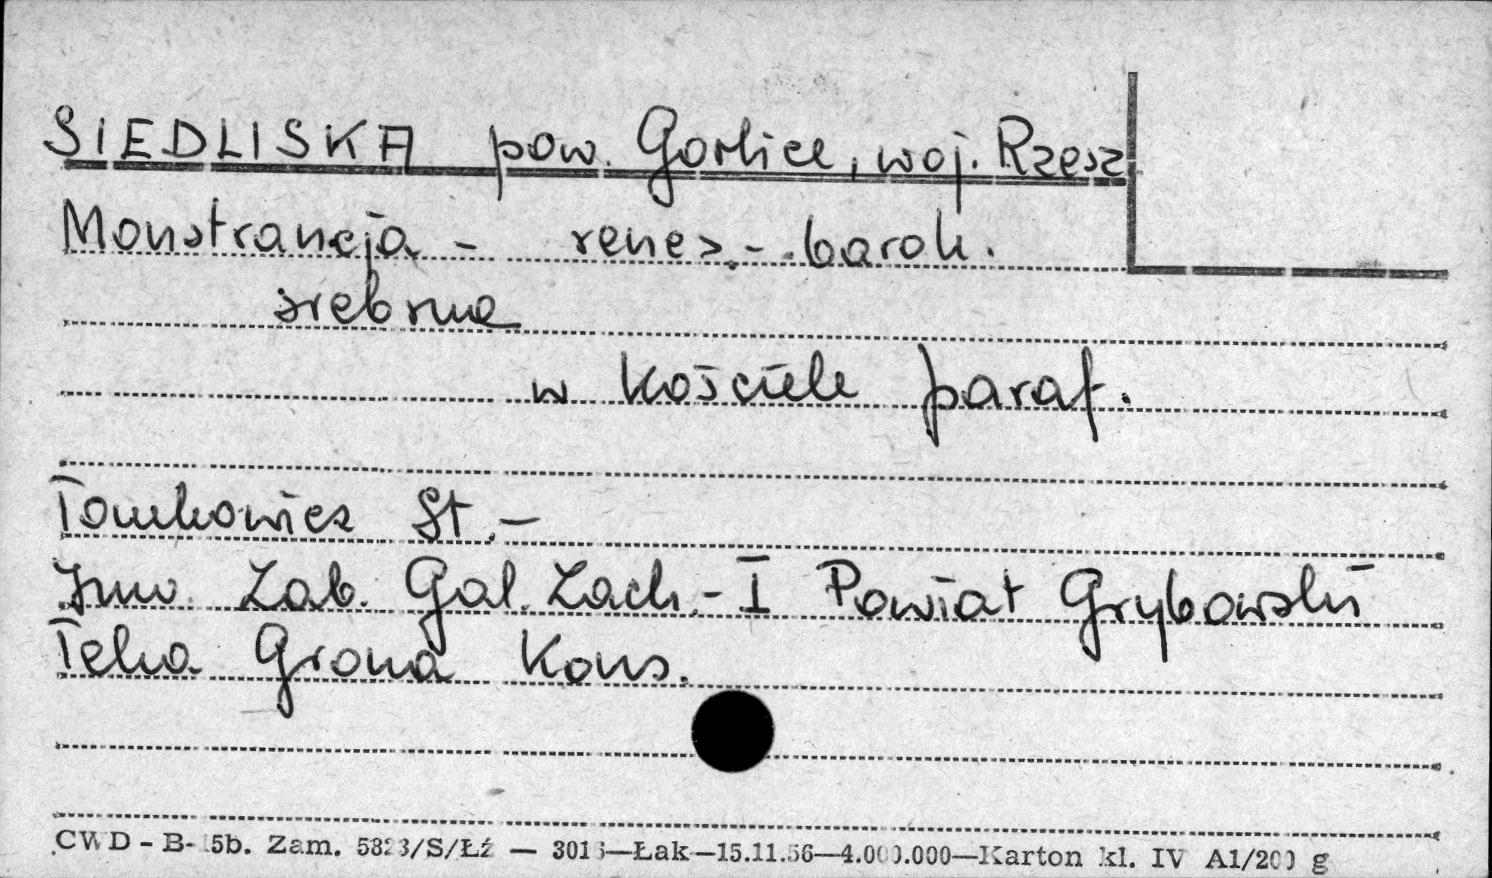 SIEDLISKA pow. Gorlice, woj. Rzesz
Monstrancja - renes.- barok.
srebrna
w kościele paraf.
Tomkowicz St.-
Inw. Zab. Gal. Zach.- I Powiat Grybowski
Teka Grona Kons.
CWD - B- 5b. Zam. 5823/S/Łź — 3016—Łak—15.11.56—4.000.000—Karton kl. IV A1/200 g